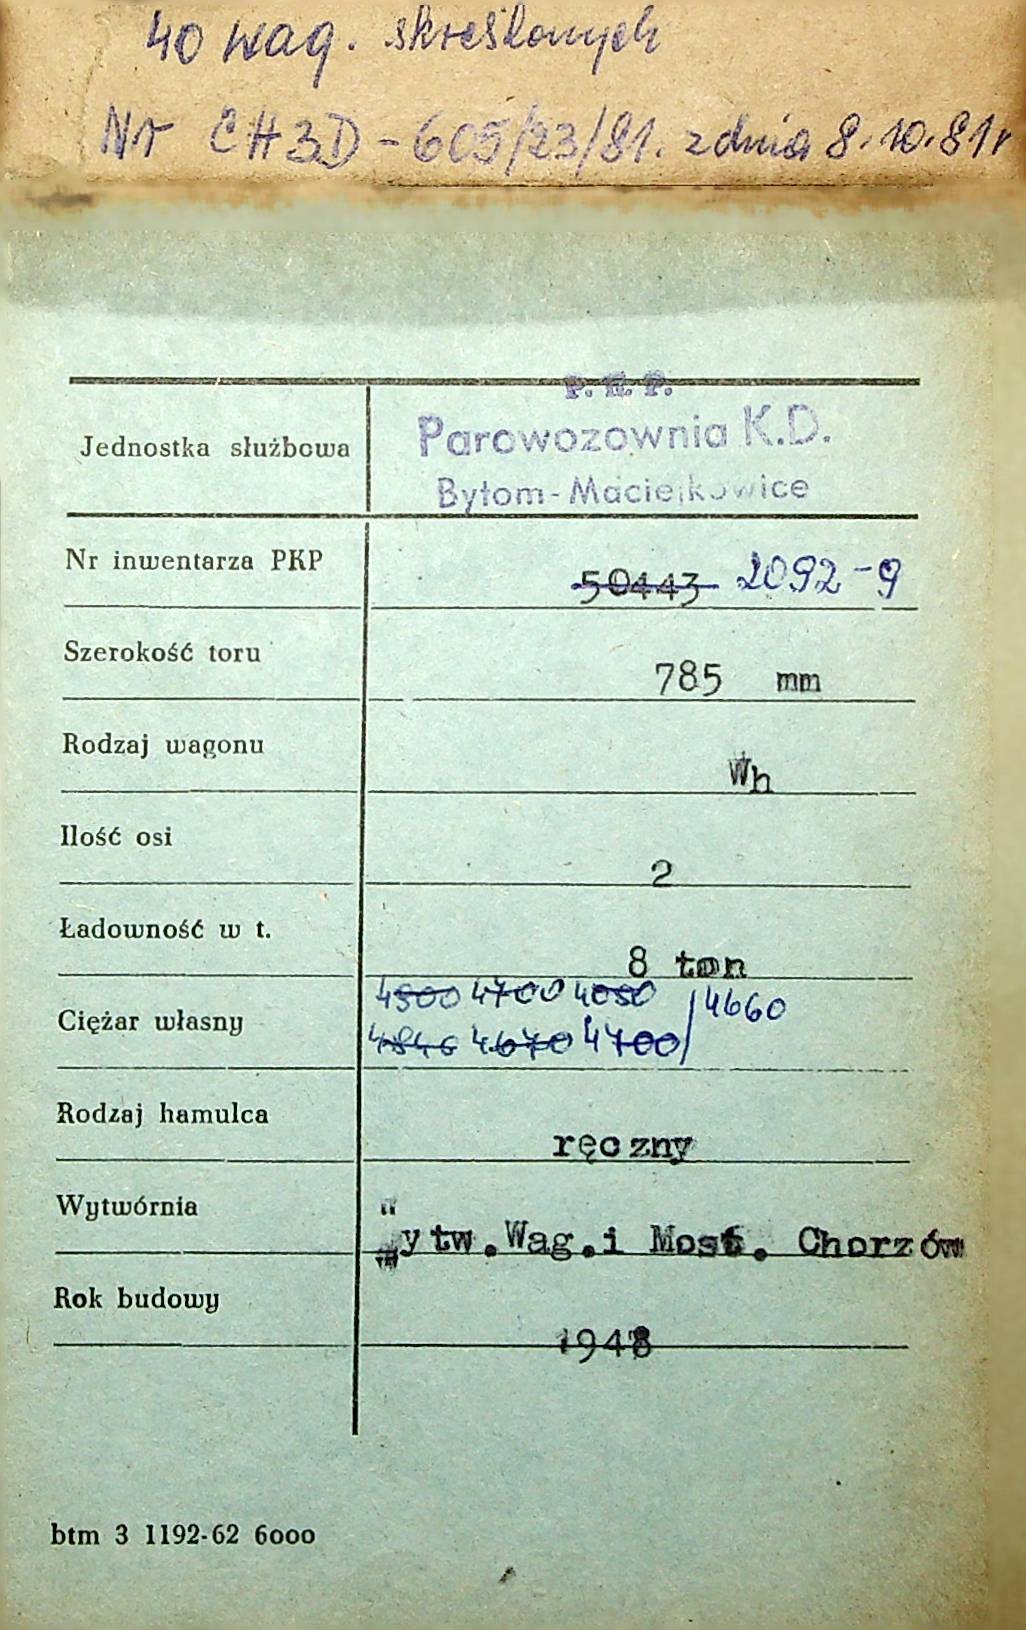 40 wag. skreślonych
Nr CH3D-605/23/81. z dnia 8.10.81r
P. K. P.
Parowozownia K.D.
Bytom-Maciejkowice
Jednostka służbowa
Nr inwentarza PKP 50443 2092-9
Szerokość toru 785 mm
Rodzaj wagonu Wh
Ilość osi 2
Ładowność w t. 8 ton
4500 4700 4050 / 4660
Ciężar własny
4846 4670 4700
Rodzaj hamulca ręczny
Wytwórnia Wytw.Wag.i Most. Chorzów
Rok budowy 1948
btm 3 1192-62 6ooo